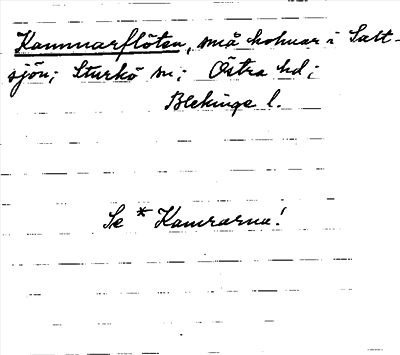 Kammarflöten, små holmar i Salt-
sjön; Sturkö sn; Östra hd;
Blekinge l.
Se * Kamrarna!